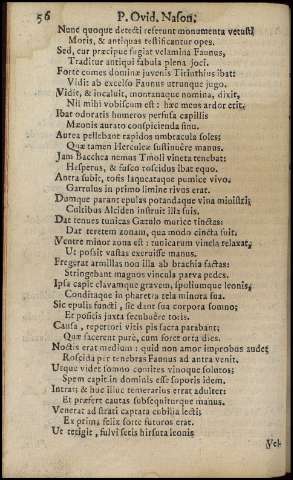 56 P. Ovid. Nason.
Nunc quoque detecti referunt monumenta vetusti
Moris, & antiquas testificantur opes.
Sed, cur præcipue fugiat velamina Faunus,
Traditur antiqui fabula plena joci.
Forte comes dominæ juvenis Tirinthius ibat:
Vidit ab excelso Faunus utrunque jugo.
Vidit, & incaluit, montanaque nomina, dixit,
Nil mihi vobiscum est: hæc meus ardor erit.
Ibat odoratis humeros perfusa capillis
Mæonis aurato conspicienda sinu.
Aurea pellebant rapidos umbracula soles:
Quæ tamen Herculeæ sustinuêre manus.
Jam Bacchea nemus Tmoli vineta tenebat:
Hesperus, & fusco roscidus ibat equo.
Antra subit, tofis laqueataque pumice vivo.
Garrulus in primo limine rivus erat.
Dumque parant epulas potandaque vina ministri;
Cultibus Alciden instruit illa suis.
Dat tenues tunicas Gætulo murice tinctas:
Dat teretem zonam, qua modo cincta fuit.
Ventre minor zona est: tunicarum vincla relaxat,
Ut possit vastas exeruisse manus.
Fregerat armillas non illa ab brachia factas:
Stringebant magnos vincula parva pedes.
Ipsa capit clavamque gravem, spoliumque leonis,
Conditaque in pharetra tela minora sua.
Sic epulis functi, sic dant sua corpora somno;
Et positis juxta secubuêre toris.
Causa, repertori vitis pia sacra parabant;
Quæ facerent purè, cum foret orta dies.
Noctis erat medium: quid non amor improbus audet?
Roscida per tenebras Faunus ad antra venit.
Utque videt somno comites vinoque solutos;
Spem capit in dominis esse soporis idem.
Intrat, & huc illuc temerarius errat adulter:
Et præfert cautas subsequiturque manus.
Venerat ad strati captata cubilia lecti;
Ex prima felix sorte futurus erat.
Ut tetigit, fulvi setis hirsuta leonis
Vel-